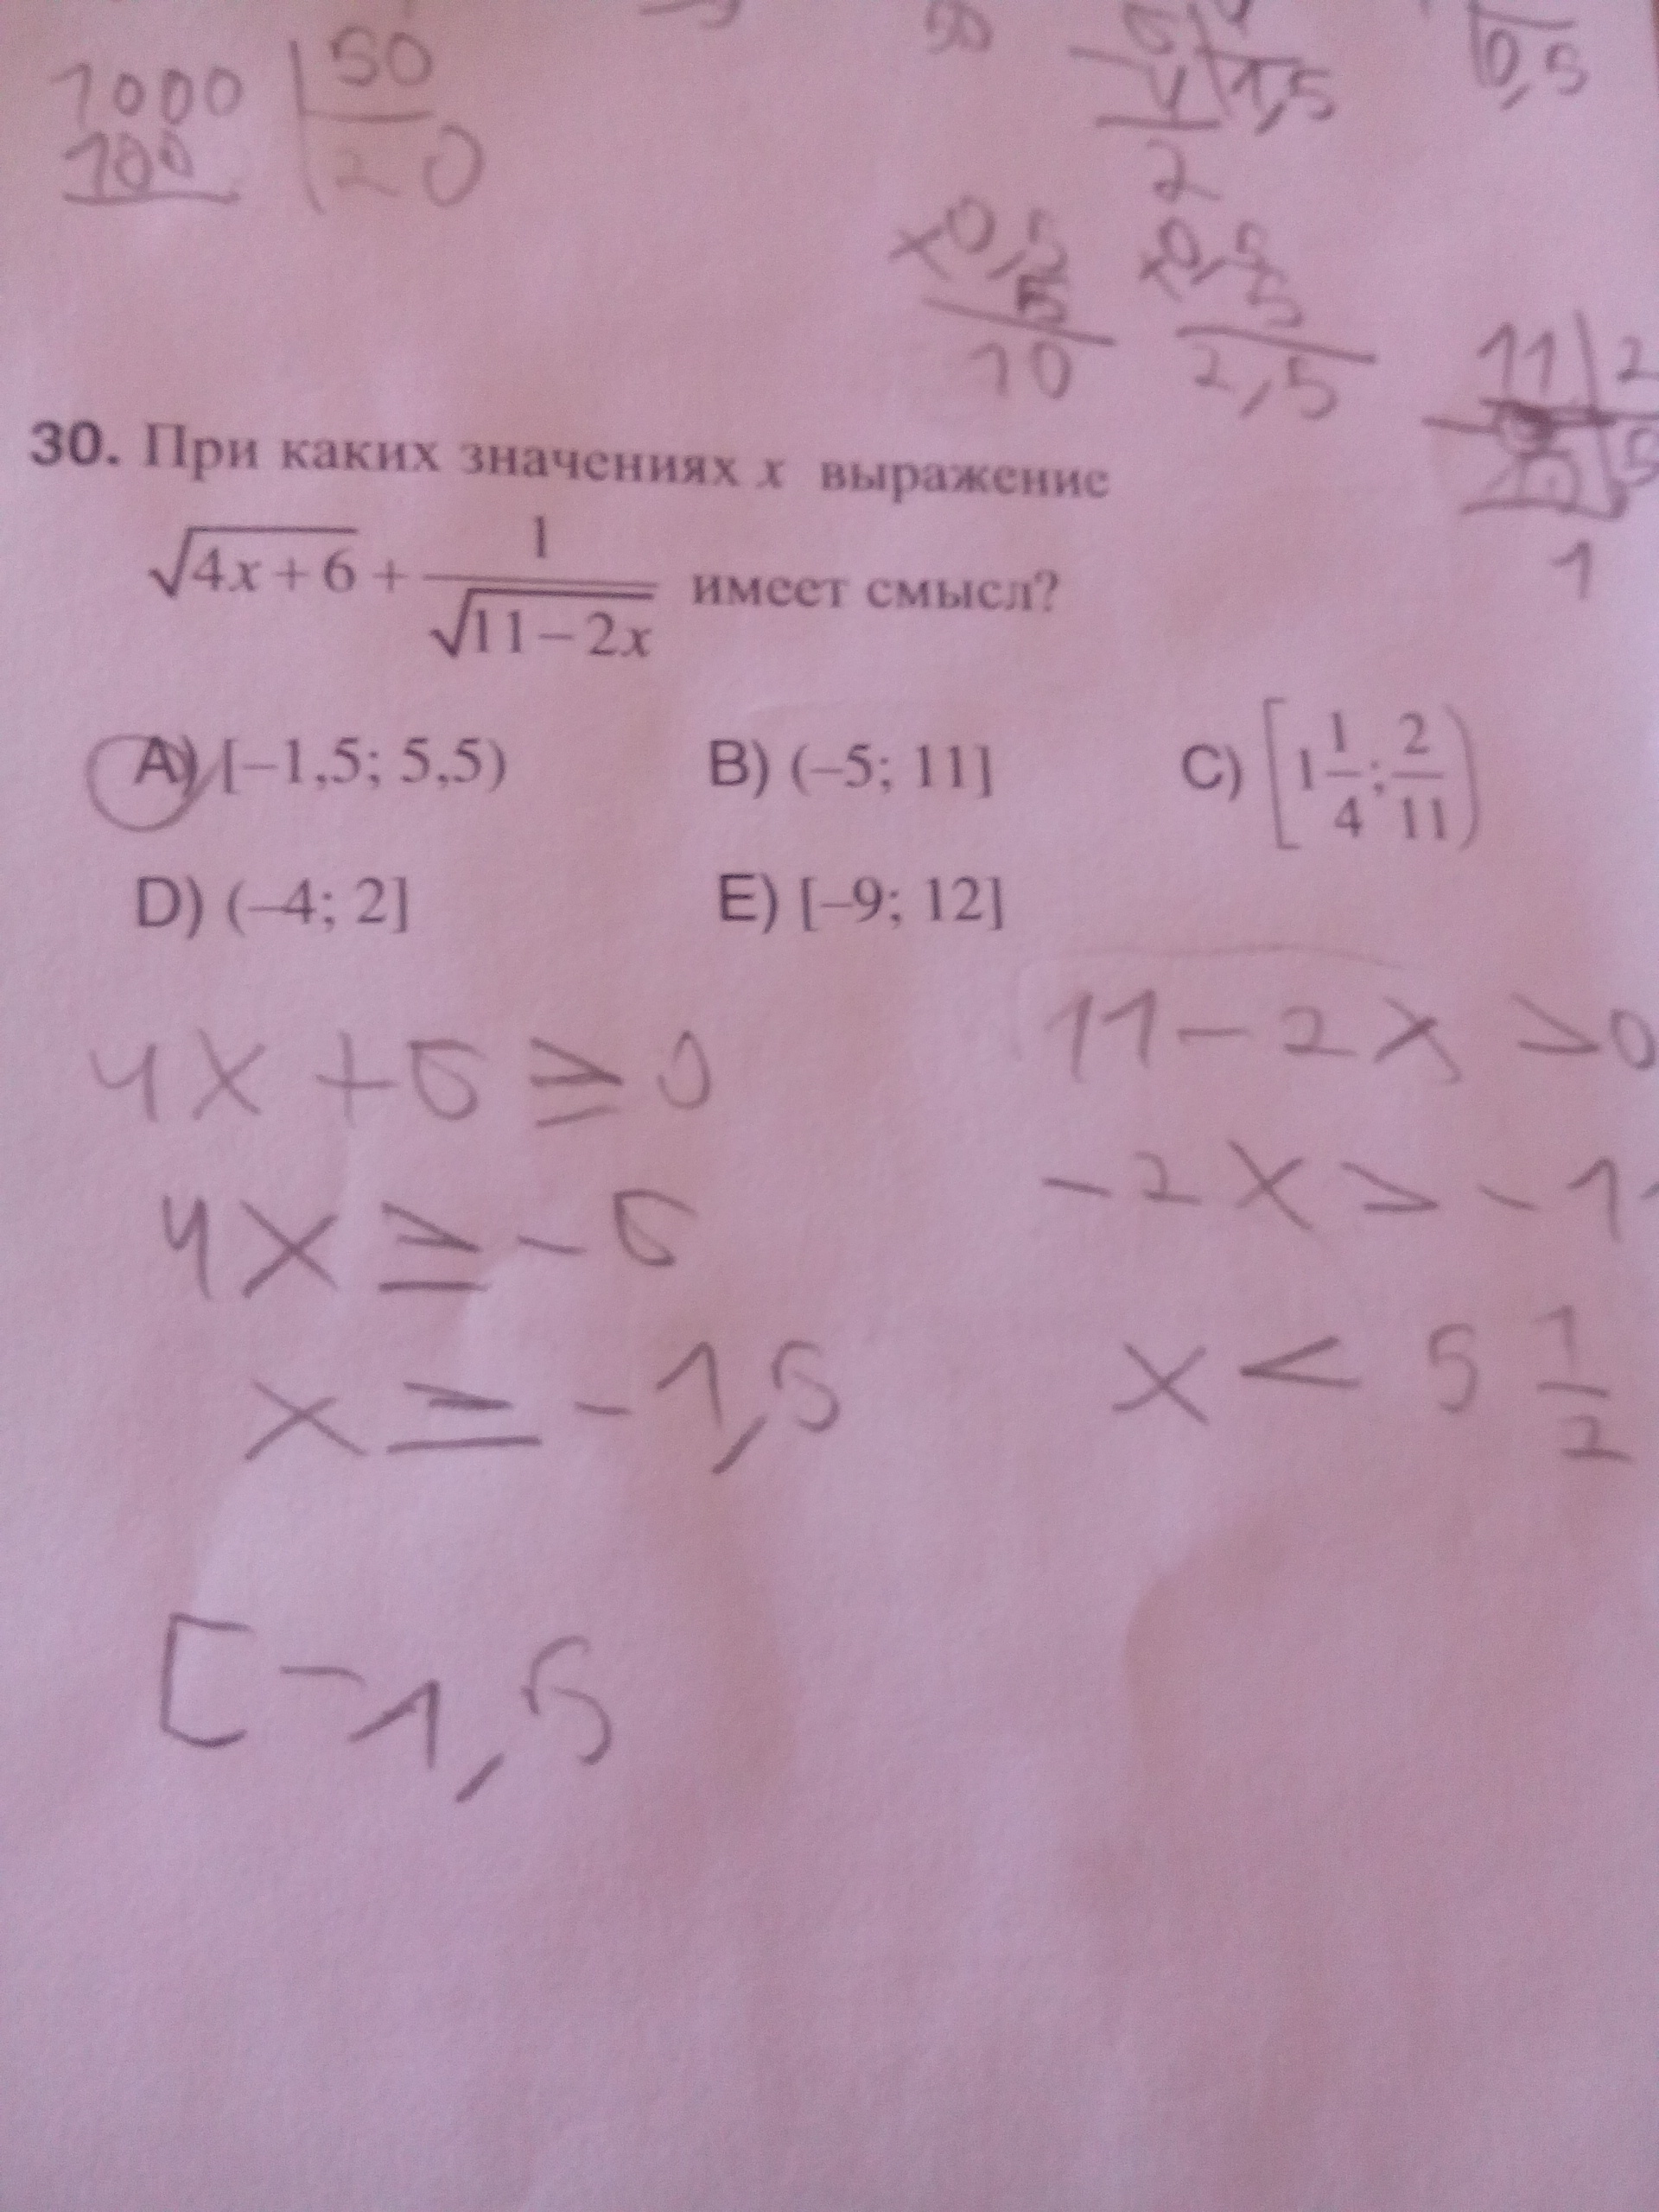 1000 50
100 20
50
4 1,5
2
0,5
×0,5 ×0,5
5 5
10 2,5
11 2
5
1
30. При каких значениях x выражение
√(4x + 6) + 1/√(11 – 2x) имеет смысл?
A) [–1,5; 5,5) B) (–5; 11] C) [1 1/4; 2/11)
D) (–4; 2] E) [–9; 12]
4x + 6 ≥ 0 11 – 2x > 0
4x ≥ – 6 – 2x > – 1
x ≥ – 1,5 x < 5 1/2
[–1,5